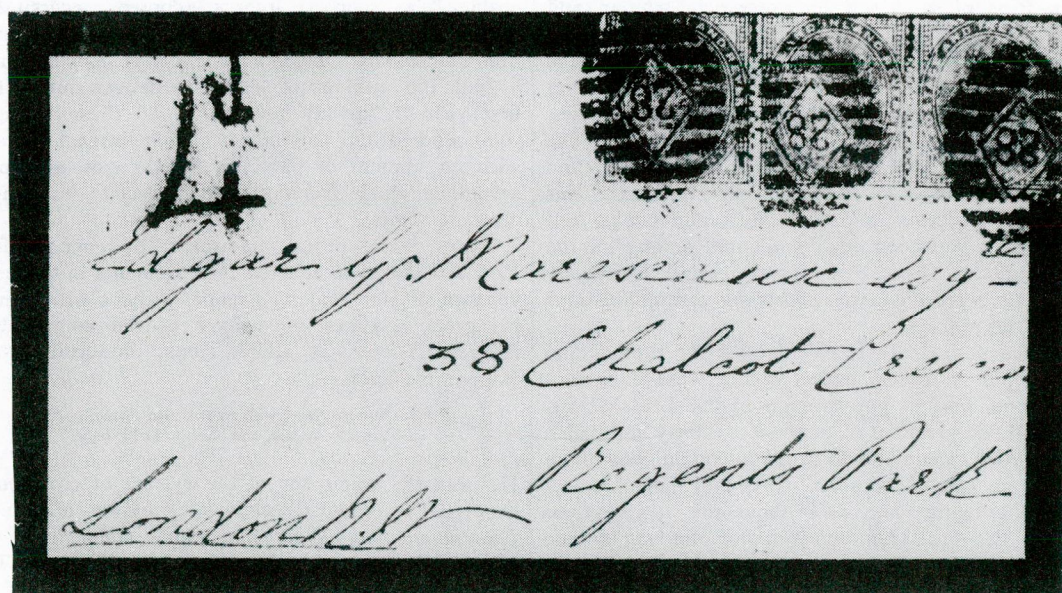 4
28 28 28
Edgar G. Marescaux Esqre
38 Chalcot Crescen
Regents Park
London N.W